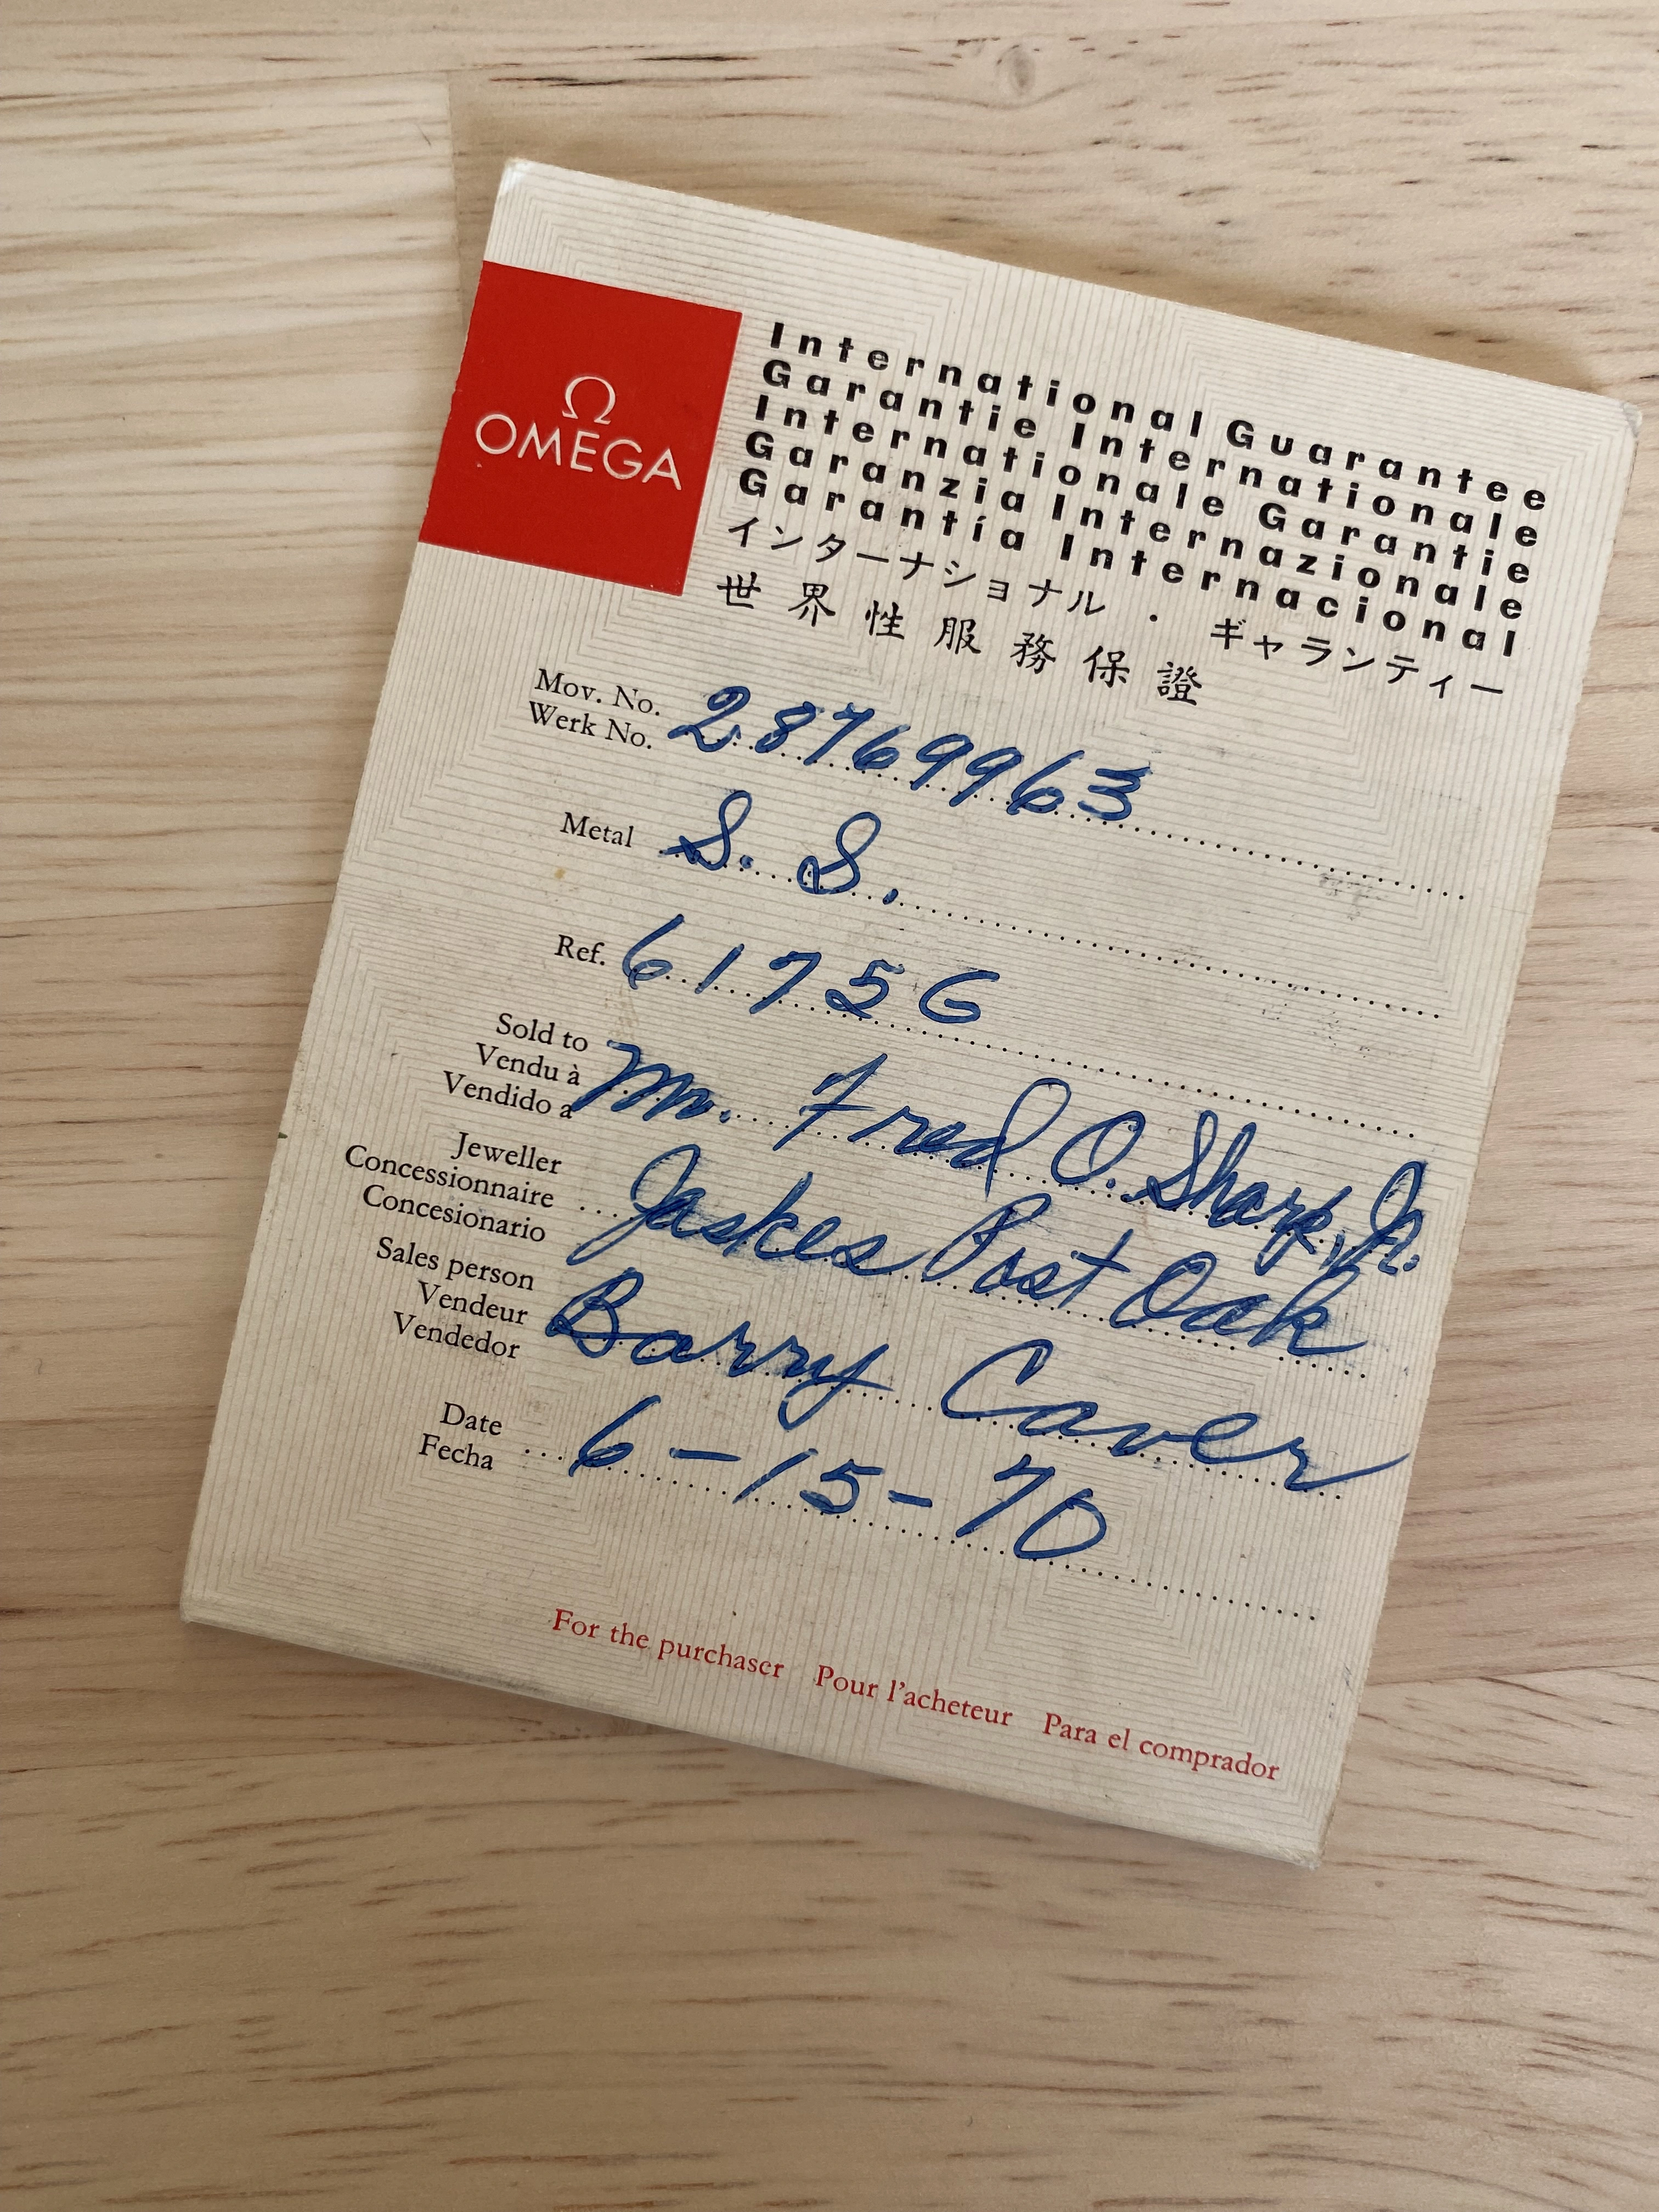 Ω
OMEGA
International Guarantee
Garantie Internationale
Internationale Garantie
Garanzia Internazionale
Garantía Internacional
インターナショナル . ギャランティー
世界性服務保證
Mov. No.
Werk No. 28769963
Metal S. S.
Ref. 6175G
Sold to
Vendu à
Vendido a Mr. Fred O. Sharp, Jr.
Jeweller
Concessionnaire
Concesionario Jaskes Post Oak
Sales person
Vendeur
Vendedor Barry Caver
Date
Fecha 6-15-70
For the purchaser Pour l'acheteur Para el comprador